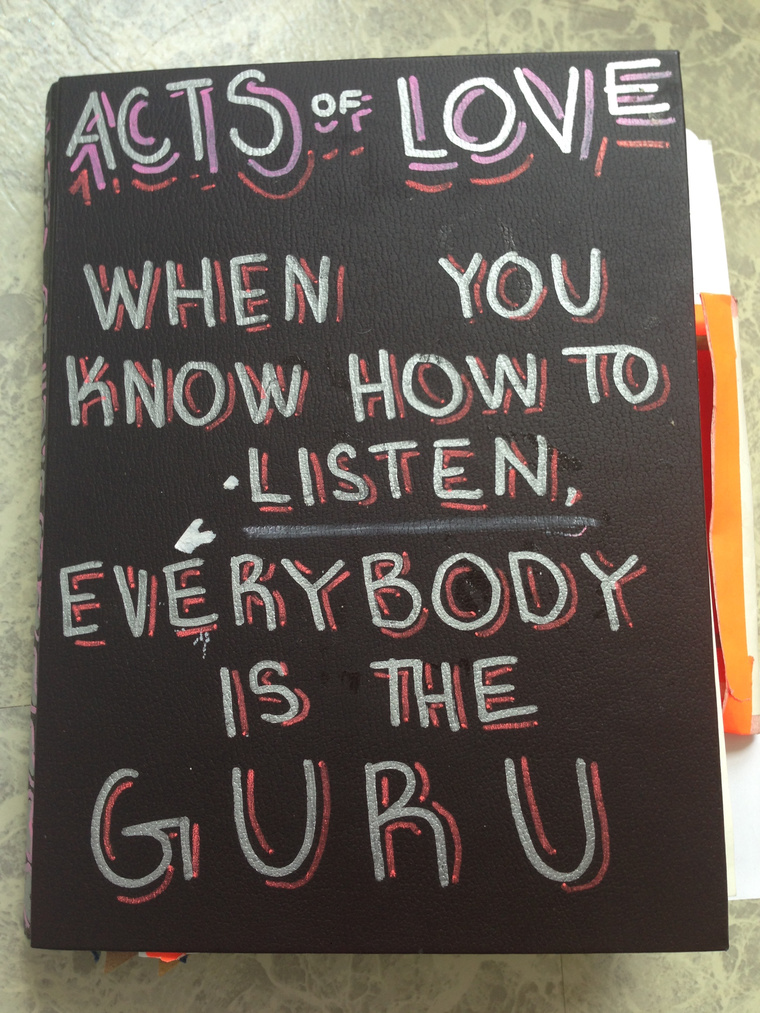 ACTS OF LOVE
WHEN YOU
KNOW HOW TO
·LISTEN,
EVERYBODY
IS THE
GURU